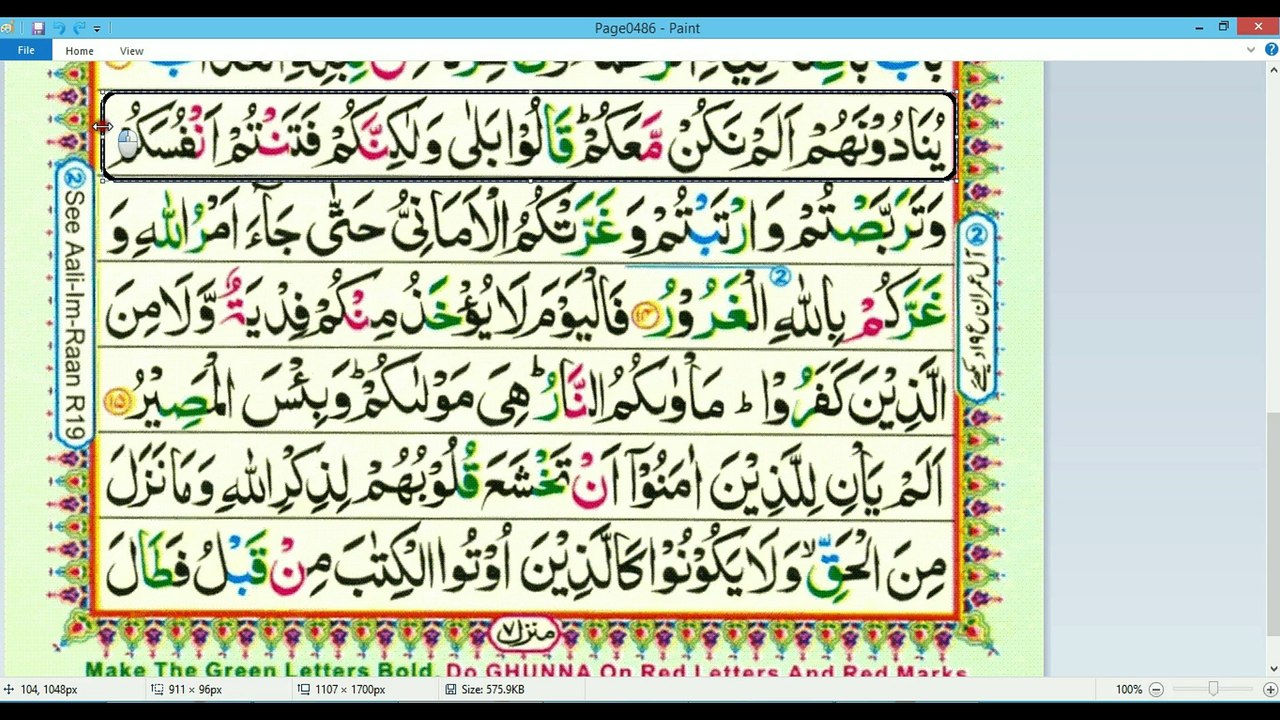 Page0486 - Paint
File Home View
يُنَادُوْنَهُمْ اَلَمْ نَكُنْ مَّعَكُمْ ؕ قَالُوْا بَلٰى وَلٰكِنَّكُمْ فَتَنْتُمْ اَنْفُسَكُمْ
وَتَرَبَّصْتُمْ وَارْتَبْتُمْ وَ غَرَّتْكُمُ الْاَمَانِىُّ حَتّٰى جَآءَ اَمْرُ اللّٰهِ وَ
غَرَّكُمْ بِاللّٰهِ الْغَرُوْرُ ۱۴ فَالْيَوْمَ لَا يُؤْخَذُ مِنْكُمْ فِدْيَةٌ وَّلَا مِنَ
الَّذِيْنَ كَفَرُوْا ؕ مَاْوٰىكُمُ النَّارُ ؕ هِىَ مَوْلٰىكُمْ ؕ وَبِئْسَ الْمَصِيْرُ ۱۵
اَلَمْ يَاْنِ لِلَّذِيْنَ اٰمَنُوْۤا اَنْ تَخْشَعَ قُلُوْبُهُمْ لِذِكْرِ اللّٰهِ وَمَا نَزَلَ
مِنَ الْحَقِّ ۙ وَلَا يَكُوْنُوْا كَالَّذِيْنَ اُوْتُوا الْكِتٰبَ مِنْ قَبْلُ فَطَالَ
② See Aali-Im-Raan R19
②
②
منزل ۷
Make The Green Letters Bold. Do GHUNNA On Red Letters And Red Marks
104, 1048px 911 × 96px 1107 × 1700px Size: 575.9KB 100%